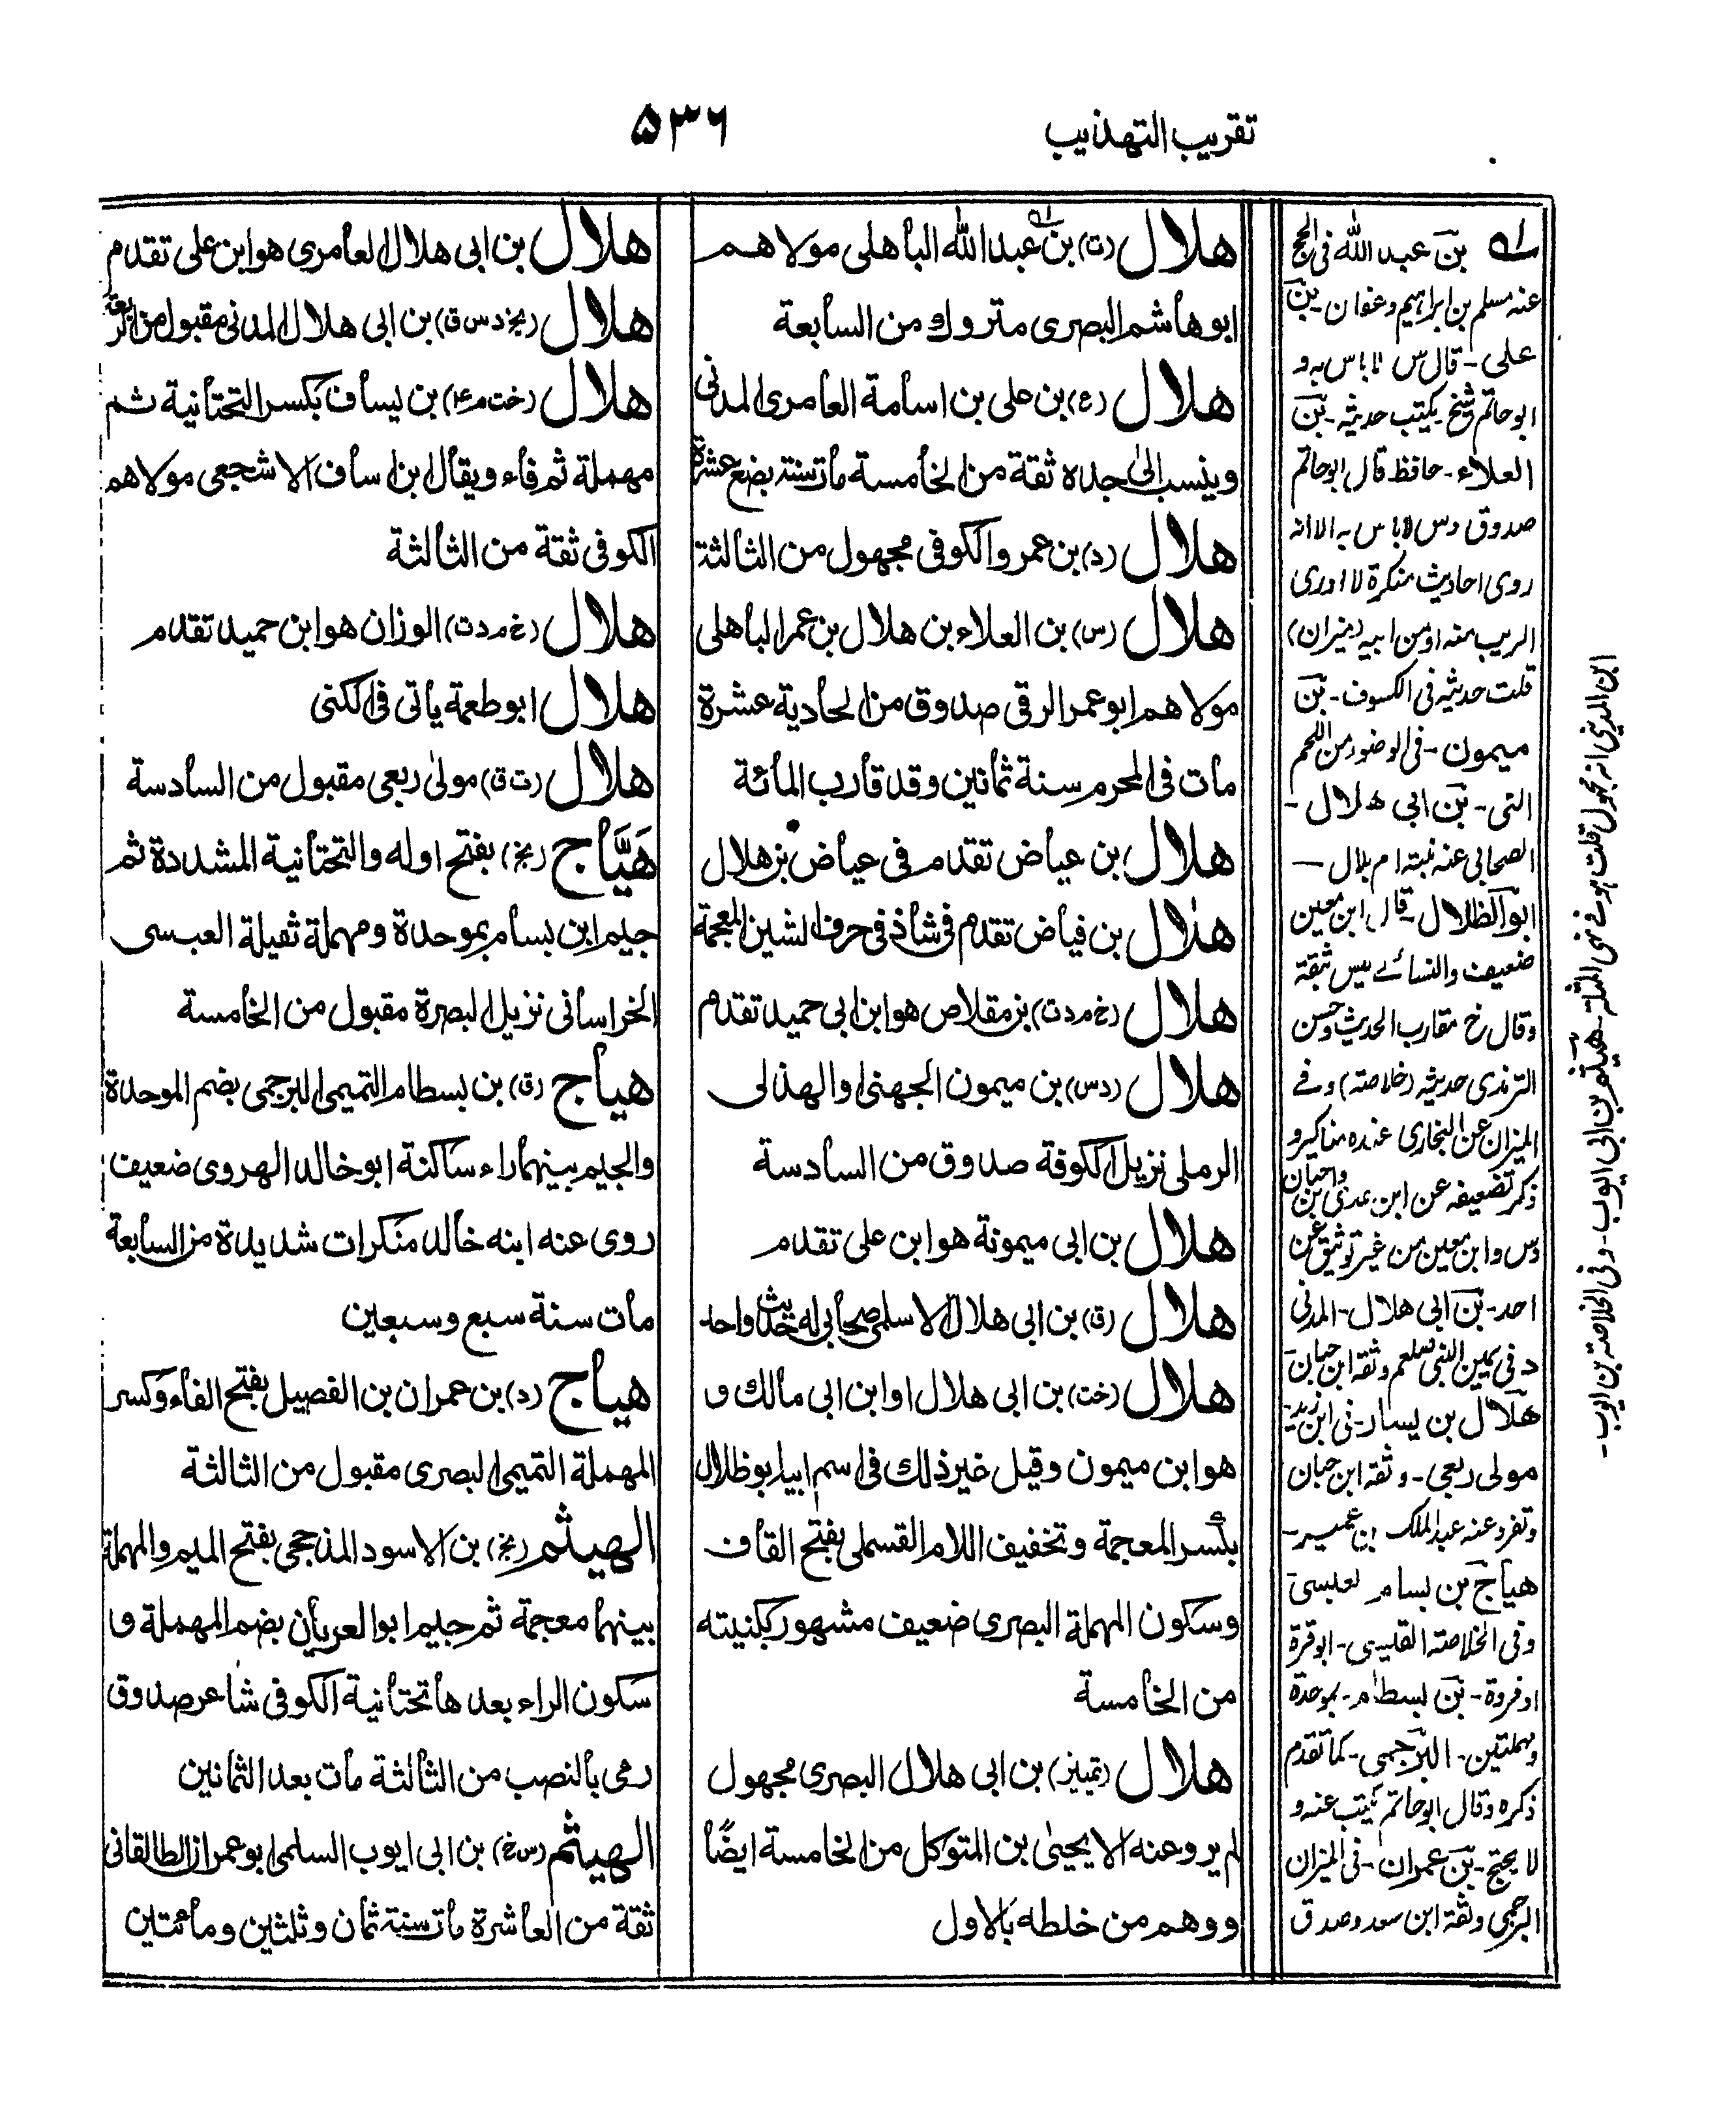 تقريب التهذيب
٥٣٦
هلال (ت) بن عبد الله الباهلى مولاهم
ابوهاشم البصرى متروك من السابعة
هلال (ع) بن على بن اسامة العامرى المدنى
وينسب الى جده ثقة من الخامسة مات سنة بضع عشرة
هلال (د) بن عمرو الكوفى مجهول من الثالثة
هلال (س) بن العلاء بن هلال بن عمر الباهلى
مولاهم ابو عمر الرقى صدوق من الحادية عشرة
مات فى المحرم سنة ثمانين وقد قارب المائة
هلال بن عياض تقدم فى عياض بن هلال
هلال بن فياض تقدم فى شاذ فى حرف الشين المعجمة
هلال (خ م د ت) بن مقلاص هو ابن ابى حميد تقدم
هلال (د س) بن ميمون الجهنى او الهذلى
الرملى نزيل الكوفة صدوق من السادسة
هلال بن ابى ميمونة هو ابن على تقدم
هلال (ق) بن ابى هلال الاسلمى صحابى له حديث واحد
هلال (خت) بن ابى هلال او ابن ابى مالك و
هو ابن ميمون وقيل غير ذلك فى اسم ابيه ابو ظلال
بكسر المعجمة وتخفيف اللام القسملى بفتح القاف
وسكون المهملة البصرى ضعيف مشهور بكنيته
من الخامسة
هلال (تمييز) بن ابى هلال البصرى مجهول
لم يرو عنه الا يحيىٰ بن المتوكل من الخامسة ايضًا
ووهم من خلطه بالاول
هلال بن ابى هلال العامرى هو ابن على تقدم
هلال (بخ د س ق) بن ابى هلال المدنى مقبول من الرابعة
هلال (خت م ٤) بن يساف بكسر التحتانية ثم
مهملة ثم فاء ويقال ابن اساف الاشجعى مولاهم
الكوفى ثقة من الثالثة
هلال (خ م د ت) الوزان هو ابن حميد تقدم
هلال ابو طعمة يأتى فى الكنى
هلال (ت ق) مولىٰ ربعى مقبول من السادسة
هَيَّاج (بخ) بفتح اوله والتحتانية المشددة ثم
جيم ابن بسام بموحدة ومهملة ثقيلة العبسى
الخراسانى نزيل البصرة مقبول من الخامسة
هياج (ق) بن بسطام التميمى البرجمى بضم الموحدة
والجيم بينهما راء ساكنة ابو خالد الهروى ضعيف
روى عنه ابنه خالد منكرات شديدة من السابعة
مات سنة سبع وسبعين
هياج (د) بن عمران بن الفصيل بفتح الفاء وكسر
المهملة التميمى البصرى مقبول من الثالثة
الهيثم (بخ) بن الاسود المذحجى بفتح الميم والمهملة
بينهما معجمة ثم جيم ابو العريان بضم المهملة و
سكون الراء بعدها تحتانية الكوفى شاعر صدوق
رمى بالنصب من الثالثة مات بعد الثمانين
الهيثم (س خ) بن ابى ايوب السلمى ابو عمران الطالقانى
ثقة من العاشرة مات سنة ثمان وثلثين ومائتين
بن عبد الله فى الحج
عنه مسلم بن ابراهيم وعفان - بن
على - قال س لا باس به و
ابو حاتم شيخ يكتب حديثه - بن
العلاء - حافظ قال ابو حاتم
صدوق وس لا باس به الا انه
روى احاديث منكرة لا ادرى
الريب منه او من ابيه (ميزان)
قلت حديثه فى الكسوف - بن
ميمون - فى الوضوء من اللحم
التى - بن ابى هلال -
الصحابى عنه بنته ام بلال -
ابو الظلال - قال ابن معين
ضعيف والنسائے ليس بثقة
وقال خ مقارب الحديث وحسن
الترمذى حديثه (خلاصة) وفے
الميزان عن البخارى عنده مناكير و
ذكر تضعيفه عن ابن عدى بن
وس وابن معين من غير توثيق عن
احد - بن ابى هلال - المدنى
د فى يمين النبى صلعم وثقه ابن حبان
هلال بن يسار - فى ابن زيد -
مولى ربعى - وثقه ابن حبان
وتفرد عنه عبد الملك بن عمير -
هياج بن بسام لعبسى
وفى الخلاصة القليسى - ابو قرة
او فروة - بن بسطام - بموحدة
ومهملتين - البرجمى - كما تقدم
ذكره وقال ابو حاتم يكتب عنه و
لا يحتج - بن عمران - فى الميزان
البرجمى وثقه ابن سعد وصدق
ابن المدينى انه مجهول قلت هو فى نهى المثلة - هيثم بن ابى ايوب - وفى الخلاصة بن ايوب -